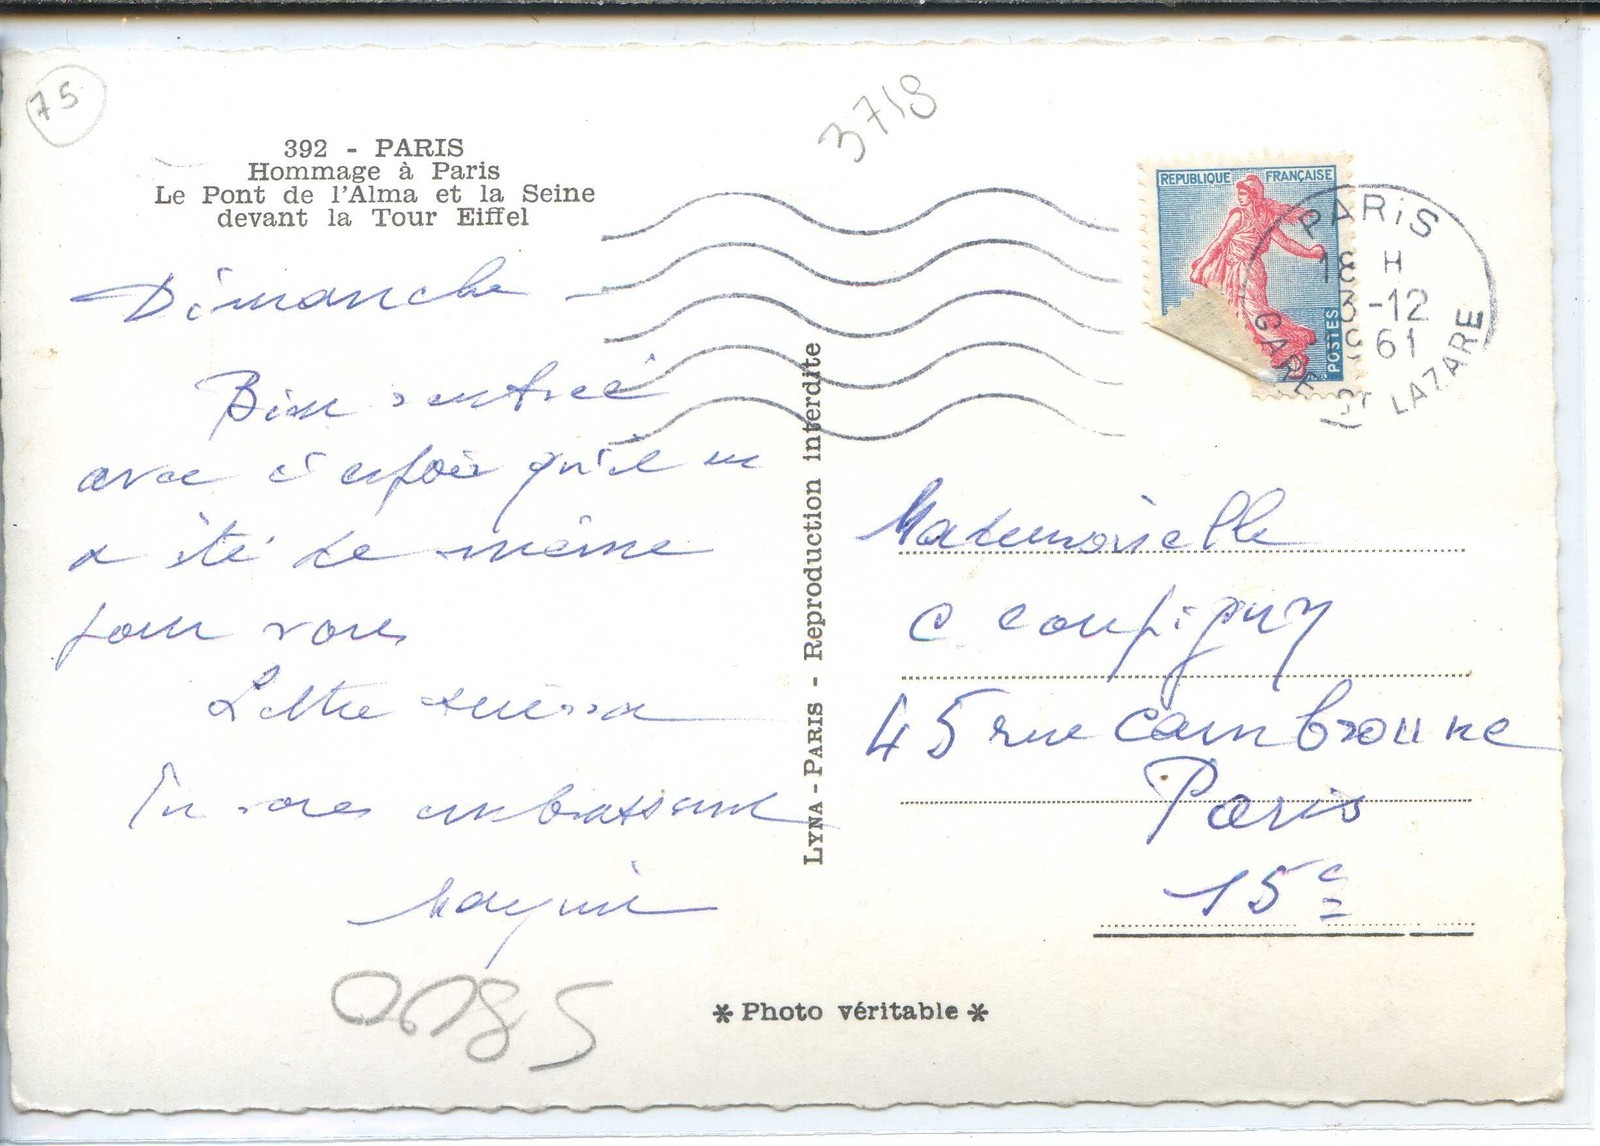 75
3718
392 - PARIS
Hommage à Paris
Le Pont de l'Alma et la Seine
devant la Tour Eiffel
REPUBLIQUE FRANÇAISE
POSTES
PARIS
18 H
3-12
1961
GARE ST LAZARE
Dimanche
Bien rentré
avec l'espoir qu'il en
a été de même
pour vous
Lettre suivra
En vous embrassant
LYNA - PARIS - Reproduction interdite
Mademoiselle
C Coupigny
45 rue Cambronne
Paris
15e
* Photo véritable *